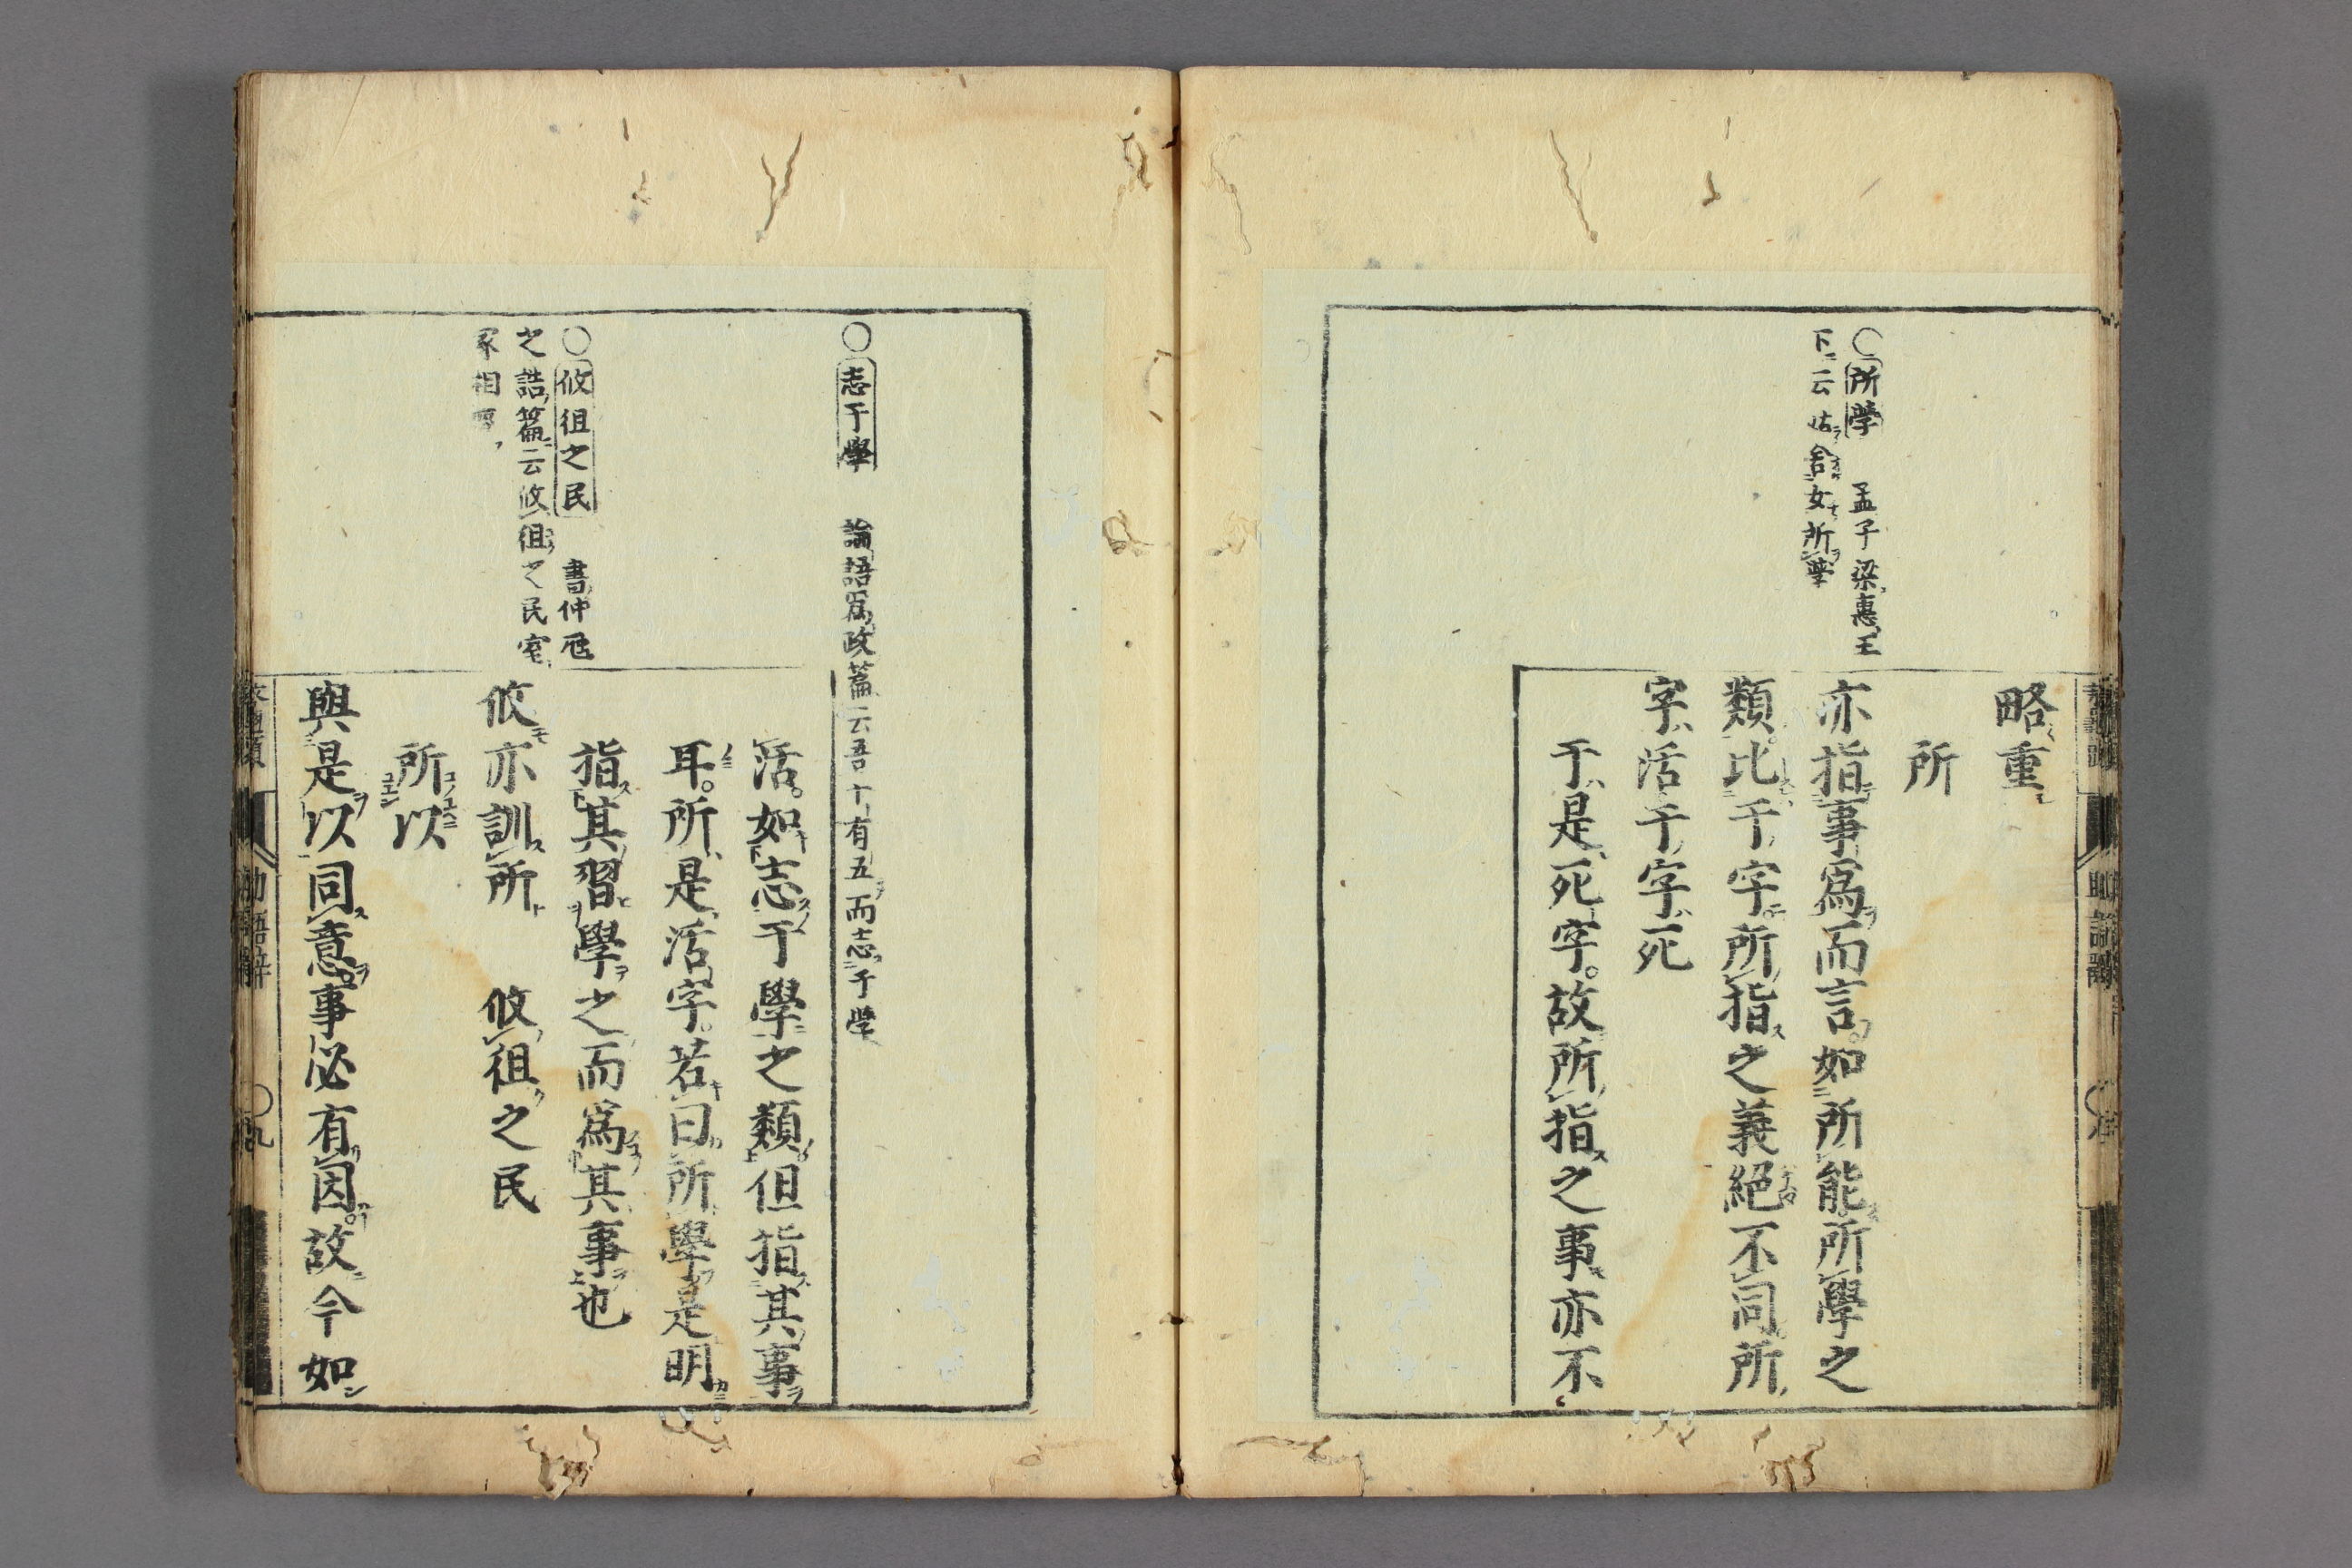 ○所學　孟子梁惠王
下云姑舎女所學
略重
所
亦指事爲而言。如所能所學之
類。比于字所指之義絕不同所
字活于字死
于是死字。故所指之事亦不
○志于學　論語爲政篇云吾十有五而志于學
活。如志于學之類但指其事
耳。所是活字。若曰所學是明
指其習學之而爲其事也
○攸徂之民　書仲虺
之誥篇云攸徂之民室
家相
攸亦訓所　攸徂之民
所以
與是以同意。事必有因。故今如
助語辭
九